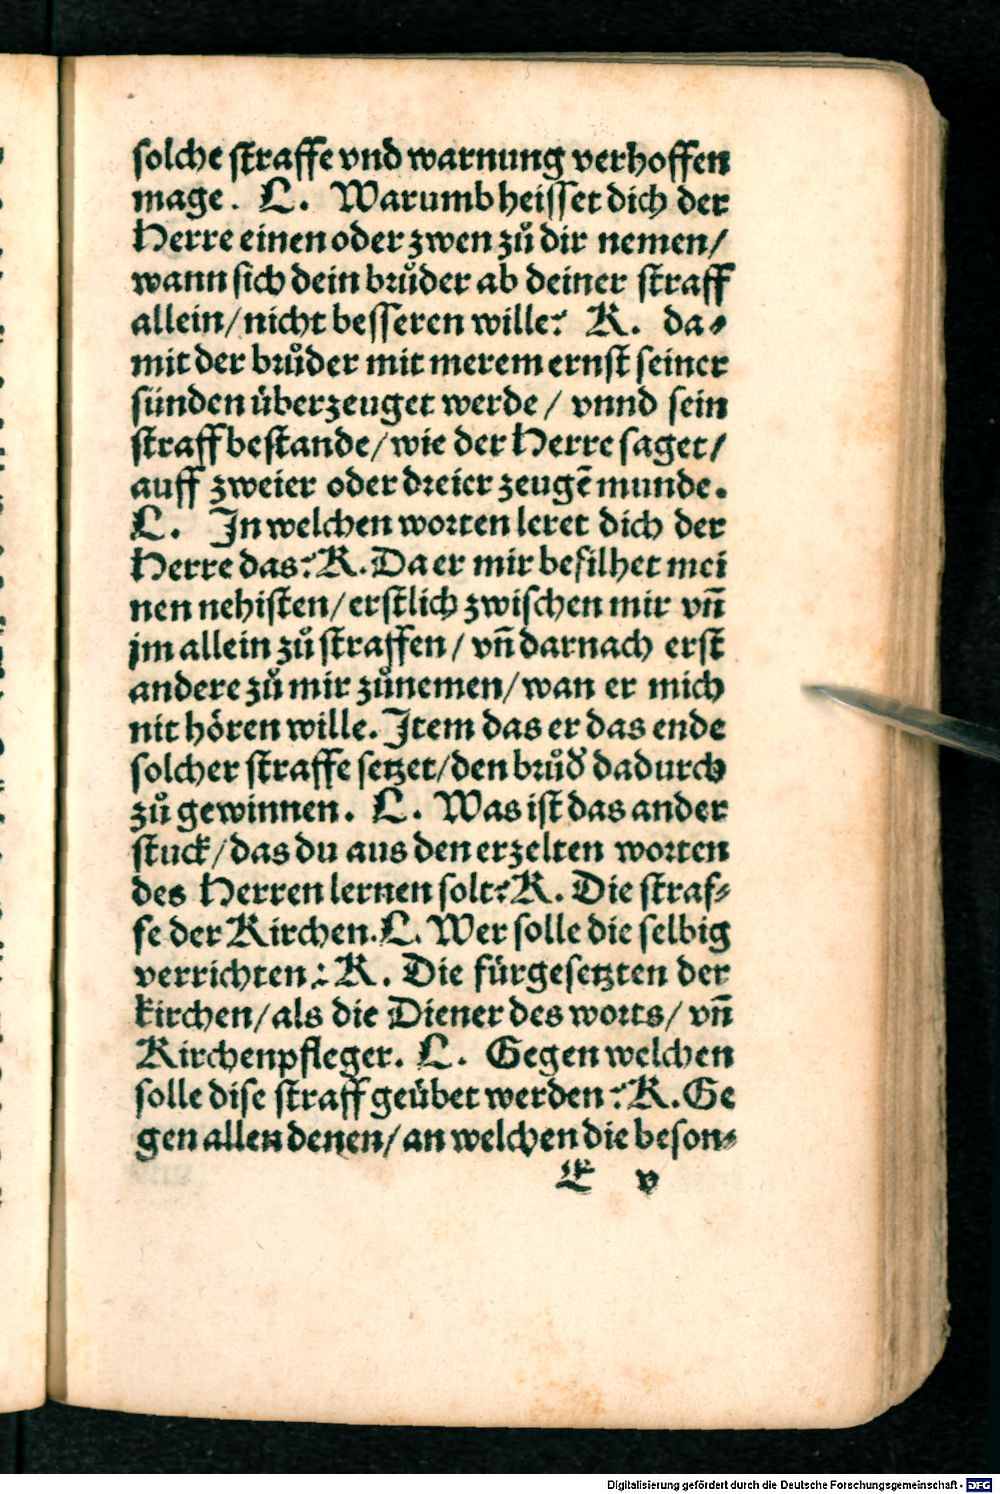 solche straffe vnd warnung verhoffen
mage. L. Warumb heisset dich der
Herre einen oder zwen zů dir nemen/
wann sich dein brůder ab deiner straff
allein/nicht besseren wille? K. da⸗
mit der brůder mit merem ernst seiner
sünden überzeuget werde/ vnnd sein
straff bestande/wie der Herre saget/
auff zweier oder dreier zeugē munde.
L. In welchen worten leret dich der
Herre das? K. Da er mir befilhet mei
nen nehisten/erstlich zwischen mir vñ
jm allein zů straffen/ vñ darnach erst
andere zů mir zůnemen/wan er mich
nit hören wille. Item das er das ende
solcher straffe setzet/den brůd̕ dadurch
zů gewinnen. L. Was ist das ander
stuck/das du aus den erzelten worten
des Herren lernen solt? K. Die straf⸗
fe der Kirchen. L. Wer solle die selbig
verrichten? K. Die fürgesetzten der
kirchen/als die Diener des worts/ vñ
Kirchenpfleger. L. Gegen welchen
solle dise straff geübet werden? K. Ge
gen allen denen/an welchen die beson⸗
E v
Digitalisierung gefördert durch die Deutsche Forschungsgemeinschaft - DFG